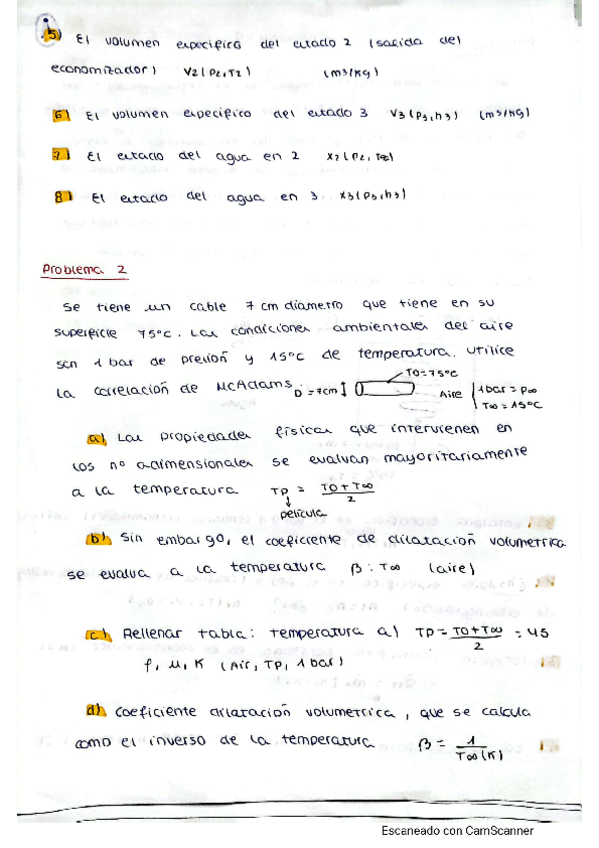 5) El volumen especifico del estado 2 (salida del
economizador) V2(P2,T2) (m3/kg)
6) El volumen especifico del estado 3 V3(P3,h3) (m3/kg)
7) El estado del agua en 2 X2(P2,T2)
8) El estado del agua en 3 X3(P3,h3)
Problema 2
Se tiene un cable 7 cm diametro que tiene en su
superficie 75ºC. Las condiciones ambientales del aire
son 1 bar de presión y 15ºC de temperatura. Utilice
la correlación de McAdams
D = 7cm
TO=75ºC
Aire
1bar = P∞
T∞ = 15ºC
a) Las propiedades físicas que intervienen en
los nº adimensionales se evaluan mayoritariamente
a la temperatura TP = TO+T∞ / 2
película
b) Sin embargo, el coeficiente de dilatación volumetrica
se evalua a la temperatura β: T∞ (aire)
c) Rellenar tabla: temperatura a) TP = TO+T∞ / 2 = 45
ρ, μ, K (Air, TP, 1 bar)
d) Coeficiente dilatación volumetrica, que se calcula
como el inverso de la temperatura β = 1 / T∞(K)
Escaneado con CamScanner